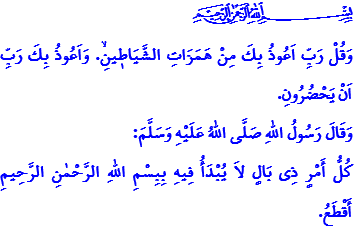 بِسْمِ اللهِ الرَّحْمٰنِ الرَّحِيمِ
وَقُلْ رَبِّ اَعُوذُ بِكَ مِنْ هَمَزَاتِ الشَّيَاطٖينِۙ. وَاَعُوذُ بِكَ رَبِّ
اَنْ يَحْضُرُونِ.
وَقَالَ رَسُولُ اللهِ صَلَّى اللهُ عَلَيْهِ وَسَلَّمَ:
كُلُّ أَمْرٍ ذِى بَالٍ لاَ يُبْدَأُ فِيهِ بِبِسْمِ اللهِ الرَّحْمٰنِ الرَّحِيمِ
أَقْطَعُ.